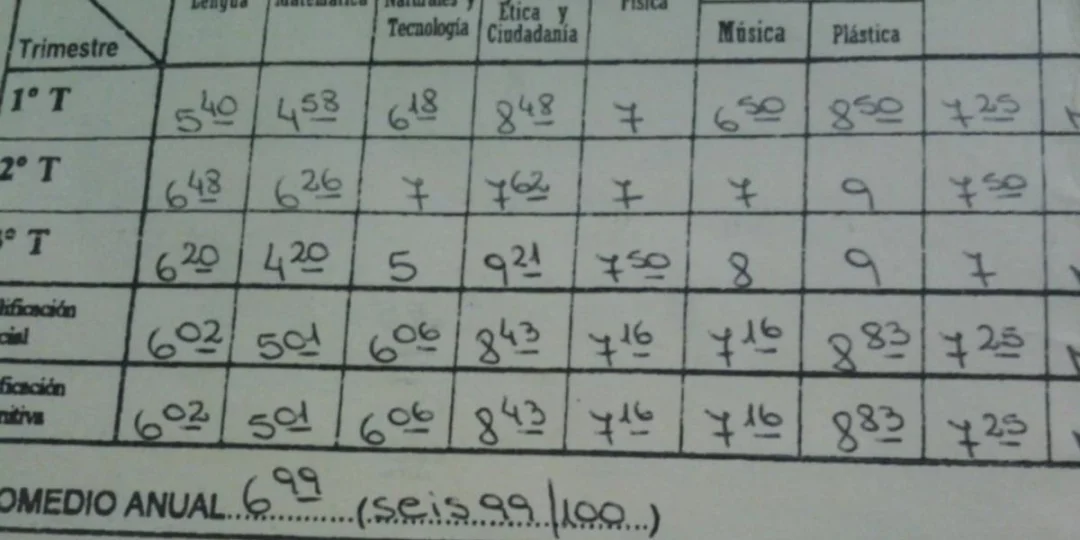 Lengua Matemática Naturales y Ética y Física
Tecnología Ciudadanía Música Plástica
Trimestre
1° T 5 40 4 58 6 18 8 48 7 6 50 8 50 7 25
2° T 6 48 6 26 7 7 62 7 7 9 7 50
° T 6 20 4 20 5 9 21 7 50 8 9 7
lificación
cial 6 02 5 01 6 06 8 43 7 16 7 16 8 83 7 25
ficación
nitiva 6 02 5 01 6 06 8 43 7 16 7 16 8 83 7 25
OMEDIO ANUAL 6 99 (seis 99/100)